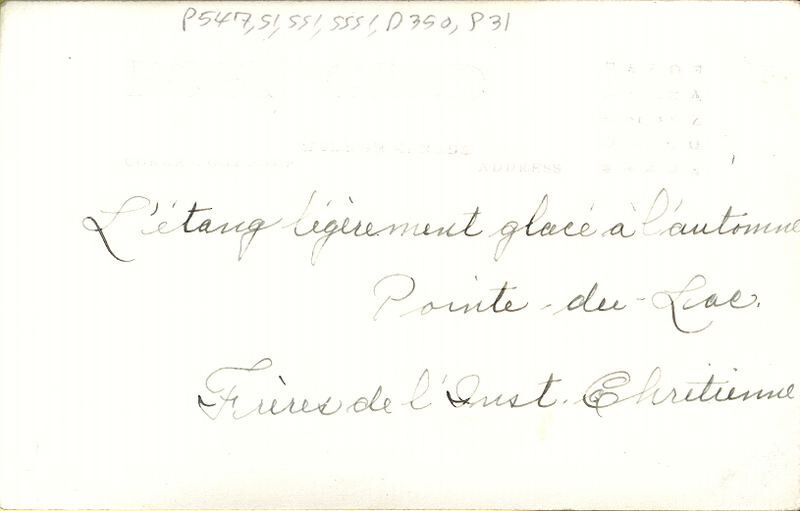 P547,S1,SS1,SSS1,D350,P31
ADDRESS
L'étang légèrement glacé à l'automne
Pointe-du-Lac.
Frères de l'Inst. Chrétienne